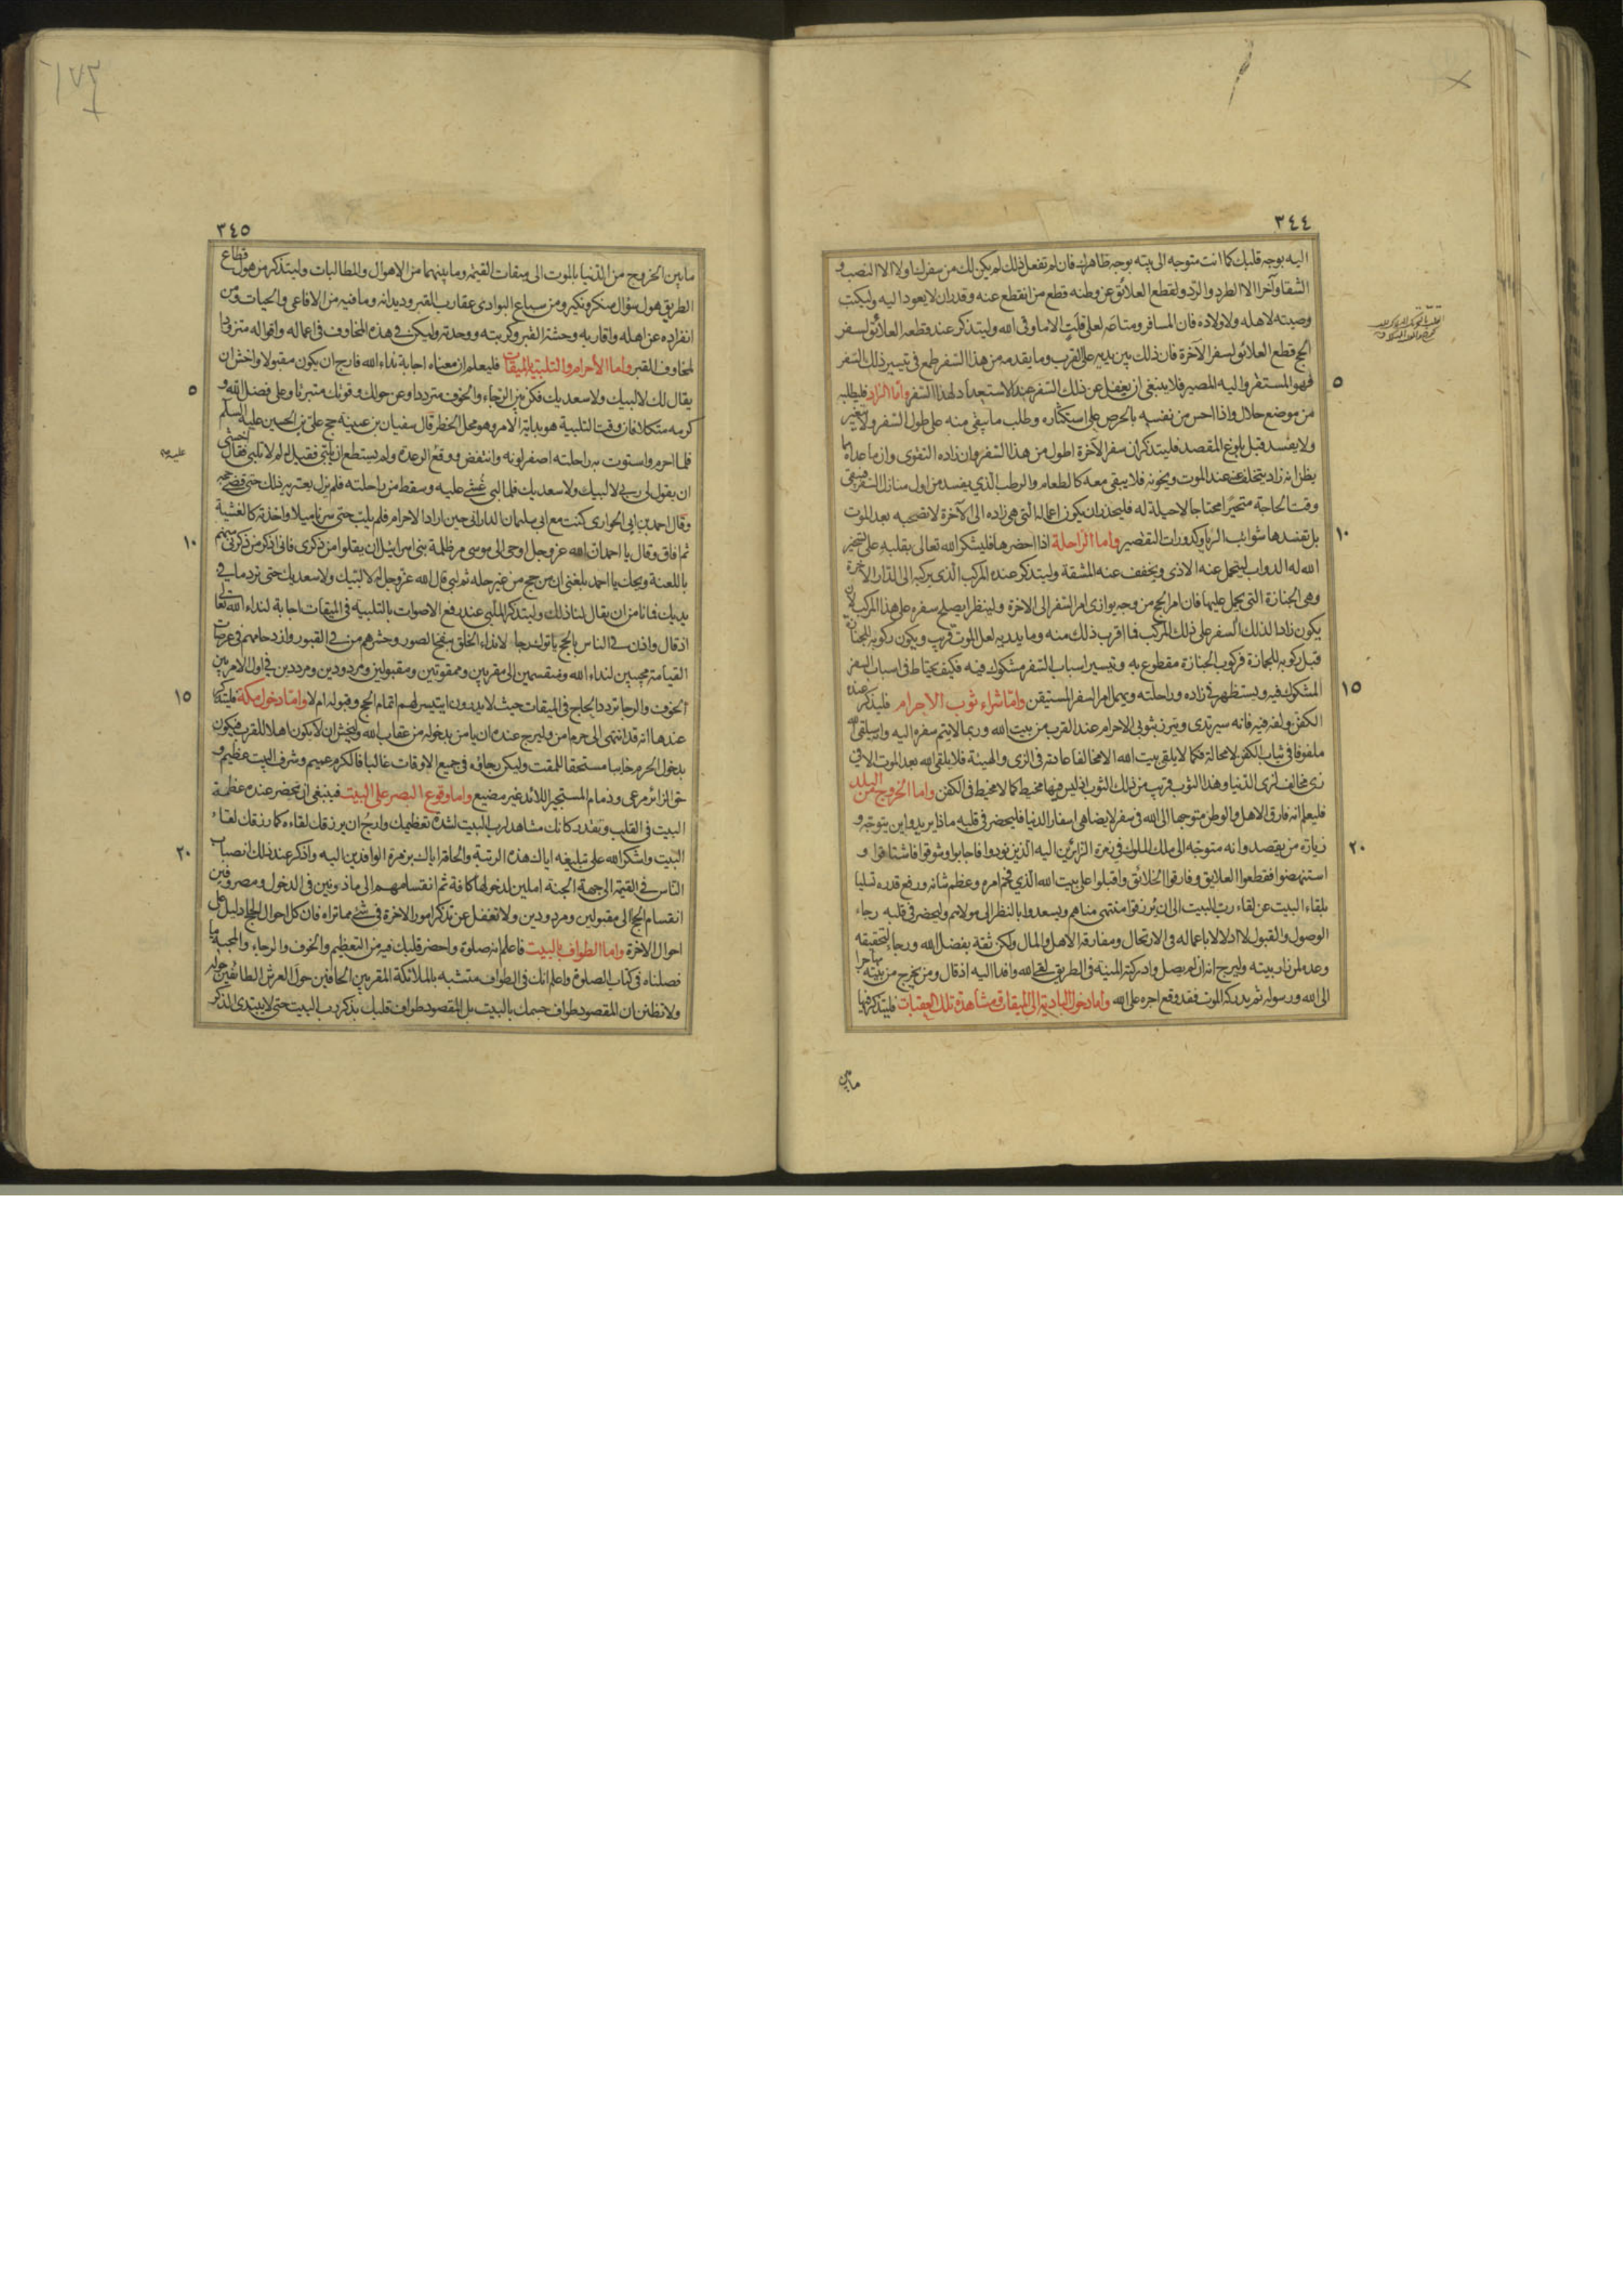 ٣٤٤
اليه بوجه قلبك كما انت متوجه الى بيته بوجه ظاهرك فان لم تفعل ذلك لم يكن لك من سفرك اولا الا النصب و
الشقا وآخرا الا الطرد والرد وليقطع العلائق عن وطنه قطع من انقطع عنه وقدر ان لا يعود اليه وليكتب
وصيته لاهله ولاولاده فان المسافر ومتاعه لعلى قلت الا ما وقى الله وليتذكر عند قطعه العلائق لسفر
الحج قطع العلائق لسفر الآخرة فان ذلك بين يديه على القرب وما يقدمه من هذا السفر طمع في تيسير ذلك السفر
فهو المستقر واليه المصير فلا ينبغي ان يغفل عن ذلك السفر عند الاستعداد لهذا السفر واما الزاد فليطلبه
٥
من موضع حلال واذا احس من نفسه بالحرص على استكثاره وطلب ما يبقى منه على طول السفر ولا يتغير
ولا يفسد قبل بلوغ المقصد فليتذكر ان سفر الآخرة اطول من هذا السفر وان زاده التقوى وان ما عداه مما
يظن انه زاد يتخلف عنه عند الموت ويخونه فلا يبقى معه كالطعام والرطب الذي يفسد من اول منازل السفر فيبقى
وقت الحاجة متحيرا محتاجا لا حيلة له فليحذر ان يكون اعماله التى هى زاده الى الآخرة لا تصحبه بعد الموت
بل تفسدها شوائب الريا وكدورات التقصير واما الراحلة اذا احضرها فليشكر الله تعالى بقلبه على تسخير
١٠
الله له الدواب ليتحمل عنه الاذى ويخفف عنه المشقة وليتذكر عنده المركب الذي يركبه الى الدار الآخرة
وهى الجنازة التى يحمل عليها فان امر الحج من وجه يوازى امر السفر الى الاخرة ولينظر ايصلح سفره على هذا المركب لان
يكون زادا لذلك السفر على ذلك المركب فما اقرب ذلك منه وما يدريه لعل الموت قريب ويكون ركوبه للجنازة
قبل ركوبه للجمازة فركوب الجنازة مقطوع به وتيسير اسباب السفر مشكوك فيه فكيف يحتاط في اسباب السفر
المشكوك فيه ويستظهر في زاده وراحلته ويهمل امر السفر المستيقن واما شراء ثوب الاحرام فليذكر عنده
١٥
الكفن ولفه فيه فانه سيرتدى ويتزر بثوبي الاحرام عند القرب من بيت الله وربما لا يتم سفره اليه وانه سيلقى الله
ملفوفا في ثياب الكفن لا محالة فكما لا يلقى بيت الله الا مخالفا عادته في الزى والهيئة فلا يلقى الله بعد الموت الا في
زى مخالف لزى الدنيا وهذا الثوب قريب من ذلك الثوب اذ ليس فيها مخيط كما لا مخيط في الكفن واما الخروج من البلد
فليعلم انه فارق الاهل والوطن متوجها الى الله في سفر لا يضاهى اسفار الدنيا فليحضر في قلبه ماذا يريد واين يتوجه و
زيارة من يقصد وانه متوجه الى ملك الملوك في زمرة الزائرين اليه الذين نودوا فاجابوا وشوقوا فاشتاقوا و
٢٠
استنهضوا فقطعوا العلايق وفارقوا الخلائق واقبلوا على بيت الله الذي فخم امره وعظم شانه ورفع قدره تسليا
بلقاء البيت عن لقاء رب البيت الى ان يرزقوا منتهى مناهم ويسعدوا بالنظر الى مولاهم وليحضر في قلبه رجاء
الوصول والقبول لا ادلالا باعماله في الارتحال ومفارقة الاهل والمال ولكن ثقة بفضل الله ورجا لتحقيقه
وعده لمن زار بيته وليرج انه ان لم يصل وادركته المنية في الطريق لقى الله وافدا اليه اذ قال ومن يخرج من بيته مهاجرا
الى الله ورسوله ثم يدركه الموت فقد وقع اجره على الله واما دخول البادية الى الميقات ومشاهدة تلك العقبات فليتذكر فيها
ما بين
٣٤٥
ما بين الخروج من الدنيا بالموت الى ميقات القيمة وما بينهما من الاهوال والمطالبات وليتذكر من هول قطاع
الطريق هول سؤال منكر ونكير ومن سباع البوادى عقارب القبر وديدانه وما فيه من الافاعى والحيات ومن
انفراده عن اهله واقاربه وحشة القبر وكربته ووحدته وليكن في هذه المخاوف في اعماله واقواله متزودا
لمخاوف القبر واما الأحرام والتلبية بالميقات فليعلم ان معناه اجابة نداء الله فارج ان يكون مقبولا واخش ان
يقال لك لا لبيك ولا سعديك فكن بين الرجاء والخوف مترددا وعن حولك وقوتك متبرئا وعلى فضل الله و
٥
كرمه متكلا فان وقت التلبية هو بداية الامر وهو محل الخطر قال سفيان بن عيينة حج على بن الحسين عليه السلم
فلما احرم واستوت به راحلته اصفر لونه وانتفض ووقع الرعدة ولم يستطع ان يلبي فقيل له لم لا تلبي فقال اخشى
ان يقول لى ربي لا لبيك ولا سعديك فلما لبى غشى عليه وسقط من راحلته فلم يزل يعتريه ذلك حتى قضى حجه
وقال احمد بن ابي الحوارى كنت مع ابي سليمان الداراني حين اراد الاحرام فلم يلب حتى سرنا ميلا واخذته كالغشية
ثم افاق وقال يا احمد ان الله عز وجل اوحى الى موسى مر ظلمة بنى اسرائيل ان يقلوا من ذكرى فانى اذكر من ذكرنى منهم
١٠
باللعنة ويحك يا احمد بلغنى ان من حج من غير حله ثم لبي قال الله عز وجل له لا لبيك ولا سعديك حتى ترد ما في
يديك فما نامن ان يقال لنا ذلك وليتذكر الملبي عند رفع الاصوات بالتلبية في الميقات اجابة لنداء الله تعالى
اذ قال واذن في الناس بالحج ياتوك رجالا نداء الخلق بنفخ الصور وحشرهم من في القبور وازدحامهم في عرصات
القيامة مجيبين لنداء الله ومنقسمين الى مقربين وممقوتين ومقبولين ومردودين ومرددين في اول الامر بين
الخوف والرجا تردد الحاج في الميقات حيث لا يدرون ايتيسر لهم اتمام الحج وقبوله ام لا واما دخول مكة فليتذكر
١٥
عندها انه قد انتهى الى حرم امن وليرج عنده ان يامن بدخوله من عقاب الله وليخش ان لا يكون اهلا للقرب فيكون
بدخول الحرم خايبا مستحقا للمقت وليكن رجاؤه في جميع الاوقات غالبا فالكرم عميم وشرف البيت عظيم و
حق الزائر مرعى وذمام المستجير اللائذ غير مضيع واما وقوع البصر على البيت فينبغى ان يحضر عنده عظمة
البيت في القلب وتقدر كانك مشاهد لرب البيت لشدة تعظيمك وارج ان يرزقك لقاءه كما رزقك لقاء
البيت واشكر الله على تبليغه اياك هذه الرتبة والحاقه اياك بزمرة الوافدين اليه واذكر عند ذلك انصباب
٢٠
الناس في القيمة الى جهة الجنة املين لدخولها كافة ثم انقسامهم الى ماذونين في الدخول ومصروفين
انقسام الحج الى مقبولين ومردودين ولا تغفل عن تذكر امور الاخرة في شئ مما تراه فان كل احوال الحاج دليل على
احوال الاخرة واما الطواف بالبيت فاعلم انه صلوة واحضر قلبك فيه من التعظيم والخوف والرجاء والمحبة ما
فصلناه في كتاب الصلوة واعلم انك في الطواف متشبه بالملائكة المقربين الحافين حول العرش الطائفين حوله
ولا تظنن ان المقصود طواف جسمك بالبيت بل المقصود طواف قلبك بذكر رب البيت حتى لا يبتدى الذكر